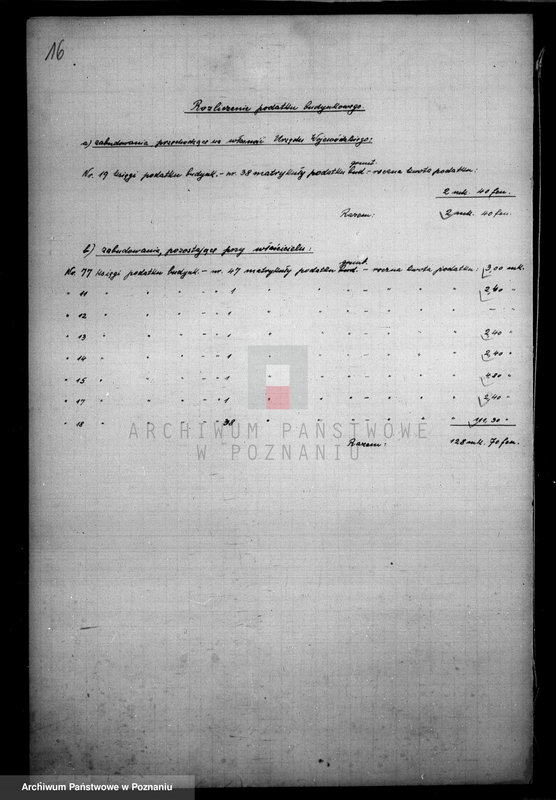 16
Rozliczenie podatku budynkowego
a) zabudowania przechodzące na własność Urzędu Wojewódzkiego:
grunt.
Nr. 19 księgi podatku budynk. - nr. 38 matrykuły podatku bud. - roczna kwota podatku:
2 mk. 40 fen.
Razem: 2 mk. 40 fen.
b) zabudowania, pozostające przy właścicielu:
grunt.
Nr. 77 księgi podatku budynk. - nr. 47 matrykuły podatku bud. - roczna kwota podatku: 3,00 mk.
" 11 " " " " - " 1 " " " - " " " 2,40 "
" 12 " " " " - " 1 " " " - " " " - -
" 13 " " " " - " 1 " " " - " " " 2,40 "
" 14 " " " " - " 1 " " " - " " " 2,40 "
" 15 " " " " - " 1 " " " - " " " 4,80 "
" 17 " " " " - " 1 " " " - " " " 2,40 "
" 18 " " " " - " 38 " " " - " " " 111,30 "
Razem: 128 mk. 70 fen.
ARCHIWUM PAŃSTWOWE
W POZNANIU
Archiwum Państwowe w Poznaniu